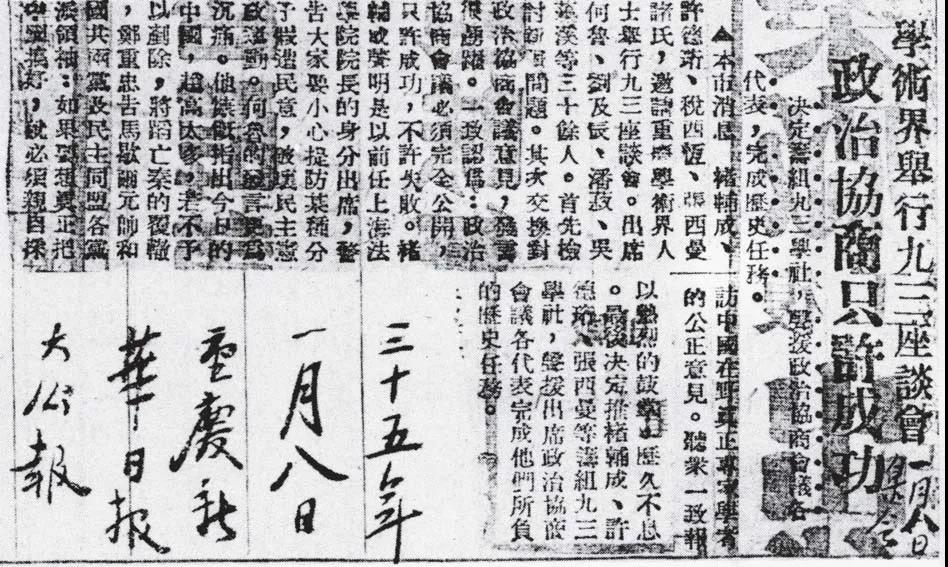 學術界舉行九三座談會
政治協商只許成功
一月八日
決定籌組九三學社,聲援政治協商會議各
代表,完成歷史任務。
▲本市消息 褚輔成、
許德珩、稅西恆、張西曼
諸氏,邀請重慶學術界人
士舉行九三座談會。出席
何魯、劉及辰、潘菽、吳
藻溪等三十餘人。首先檢
討問題。其次交換對
政治協商會議意見,發言
很踴躍。一致認爲:政治
協商會議必須完全公開,
只許成功,不許失敗。褚
輔成聲明是以前任上海法
學院院長的身分出席,警
告大家要小心提防某種分
子假造民意,破壞民主憲
政運動。何魯的發言更爲
沉痛。他慷慨指出今日的
中國,趙高太多,若不予
以剷除,將蹈亡秦的覆轍
,鄭重忠告馬歇爾元帥和
國共兩黨及民主同盟各黨
派領袖:如果要想真正把
中國弄好,就必須親自探
訪中國在野真正專家學者
的公正意見。聽衆一致報
以熱烈的鼓掌。歷久不息
。最後決定推褚輔成、許
德珩、張西曼等籌組九三
學社,聲援出席政治協商
會議各代表完成他們所負
的歷史任務。
三十五年
一月八日
重慶新
華日報
大公報